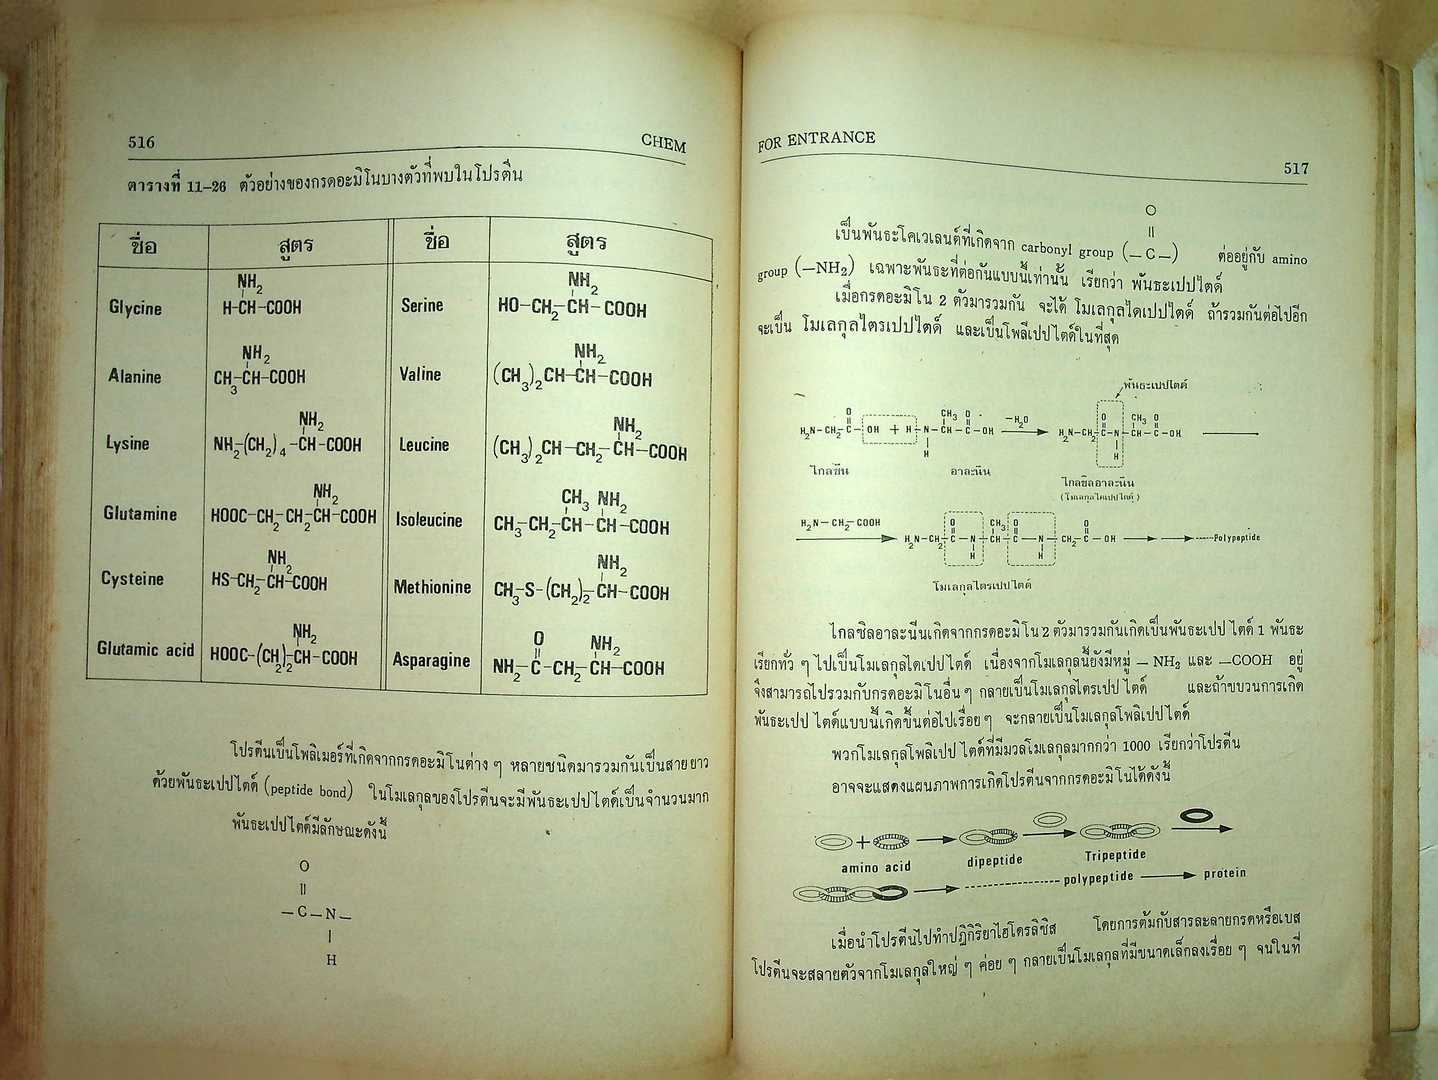 516 CHEM
ตารางที่ 11-26 ตัวอย่างของกรดอะมิโนบางตัวที่พบในโปรตีน
ชื่อ สูตร ชื่อ สูตร
NH2 NH2
Glycine H-CH-COOH Serine HO-CH2-CH-COOH
NH2 NH2
Alanine CH3-CH-COOH Valine (CH3)2CH-CH-COOH
NH2 NH2
Lysine NH2-(CH2)4-CH-COOH Leucine (CH3)2CH-CH2-CH-COOH
NH2 CH3 NH2
Glutamine HOOC-CH2-CH2-CH-COOH Isoleucine CH3-CH2-CH-CH-COOH
NH2 NH2
Cysteine HS-CH2-CH-COOH Methionine CH3-S-(CH2)2-CH-COOH
NH2 O NH2
Glutamic acid HOOC-(CH2)2-CH-COOH Asparagine NH2-C-CH2-CH-COOH
โปรตีนเป็นโพลิเมอร์ที่เกิดจากกรดอะมิโนต่าง ๆ หลายชนิดมารวมกันเป็นสายยาว
ด้วยพันธะเปปไตด์ (peptide bond) ในโมเลกุลของโปรตีนจะมีพันธะเปปไตด์เป็นจำนวนมาก
พันธะเปปไตด์มีลักษณะดังนี้
O
||
-C-N-
|
H
FOR ENTRANCE 517
O
||
เป็นพันธะโคเวเลนต์ที่เกิดจาก carbonyl group (-C-) ต่ออยู่กับ amino
group (-NH2) เฉพาะพันธะที่ต่อกันแบบนี้เท่านั้น เรียกว่า พันธะเปปไตด์
เมื่อกรดอะมิโน 2 ตัวมารวมกัน จะได้ โมเลกุลไดเปปไตด์ ถ้ารวมกันต่อไปอีก
จะเป็น โมเลกุลไตรเปปไตด์ และเป็นโพลีเปปไตด์ในที่สุด
พันธะเปปไตด์
O CH3 O O CH3 O
H2N-CH2-C-OH + H-N-CH-C-OH -H2O H2N-CH2-C-N-CH-C-OH
H H
ไกลซีน อาละนีน ไกลซิลอาละนีน
(โมเลกุลไดเปปไตด์)
H2N-CH2-COOH O CH3 O O
H2N-CH2-C-N-CH-C-N-CH2-C-OH Polypeptide
H H
โมเลกุลไตรเปปไตด์
ไกลซิลอาละนีนเกิดจากกรดอะมิโน 2 ตัวมารวมกันเกิดเป็นพันธะเปปไตด์ 1 พันธะ
เรียกทั่ว ๆ ไปเป็นโมเลกุลไดเปปไตด์ เนื่องจากโมเลกุลนี้ยังมีหมู่ -NH2 และ -COOH อยู่
จึงสามารถไปรวมกับกรดอะมิโนอื่น ๆ กลายเป็นโมเลกุลไตรเปปไตด์ และถ้าขบวนการเกิด
พันธะเปปไตด์แบบนี้เกิดขึ้นต่อไปเรื่อย ๆ จะกลายเป็นโมเลกุลโพลิเปปไตด์
พวกโมเลกุลโพลิเปปไตด์ที่มีมวลโมเลกุลมากกว่า 1000 เรียกว่าโปรตีน
อาจจะแสดงแผนภาพการเกิดโปรตีนจากกรดอะมิโนได้ดังนี้
+
amino acid dipeptide Tripeptide
polypeptide protein
เมื่อนำโปรตีนไปทำปฏิกิริยาไฮโดรลิซิส โดยการต้มกับสารละลายกรดหรือเบส
โปรตีนจะสลายตัวจากโมเลกุลใหญ่ ๆ ค่อย ๆ กลายเป็นโมเลกุลที่มีขนาดเล็กลงเรื่อย ๆ จนในที่